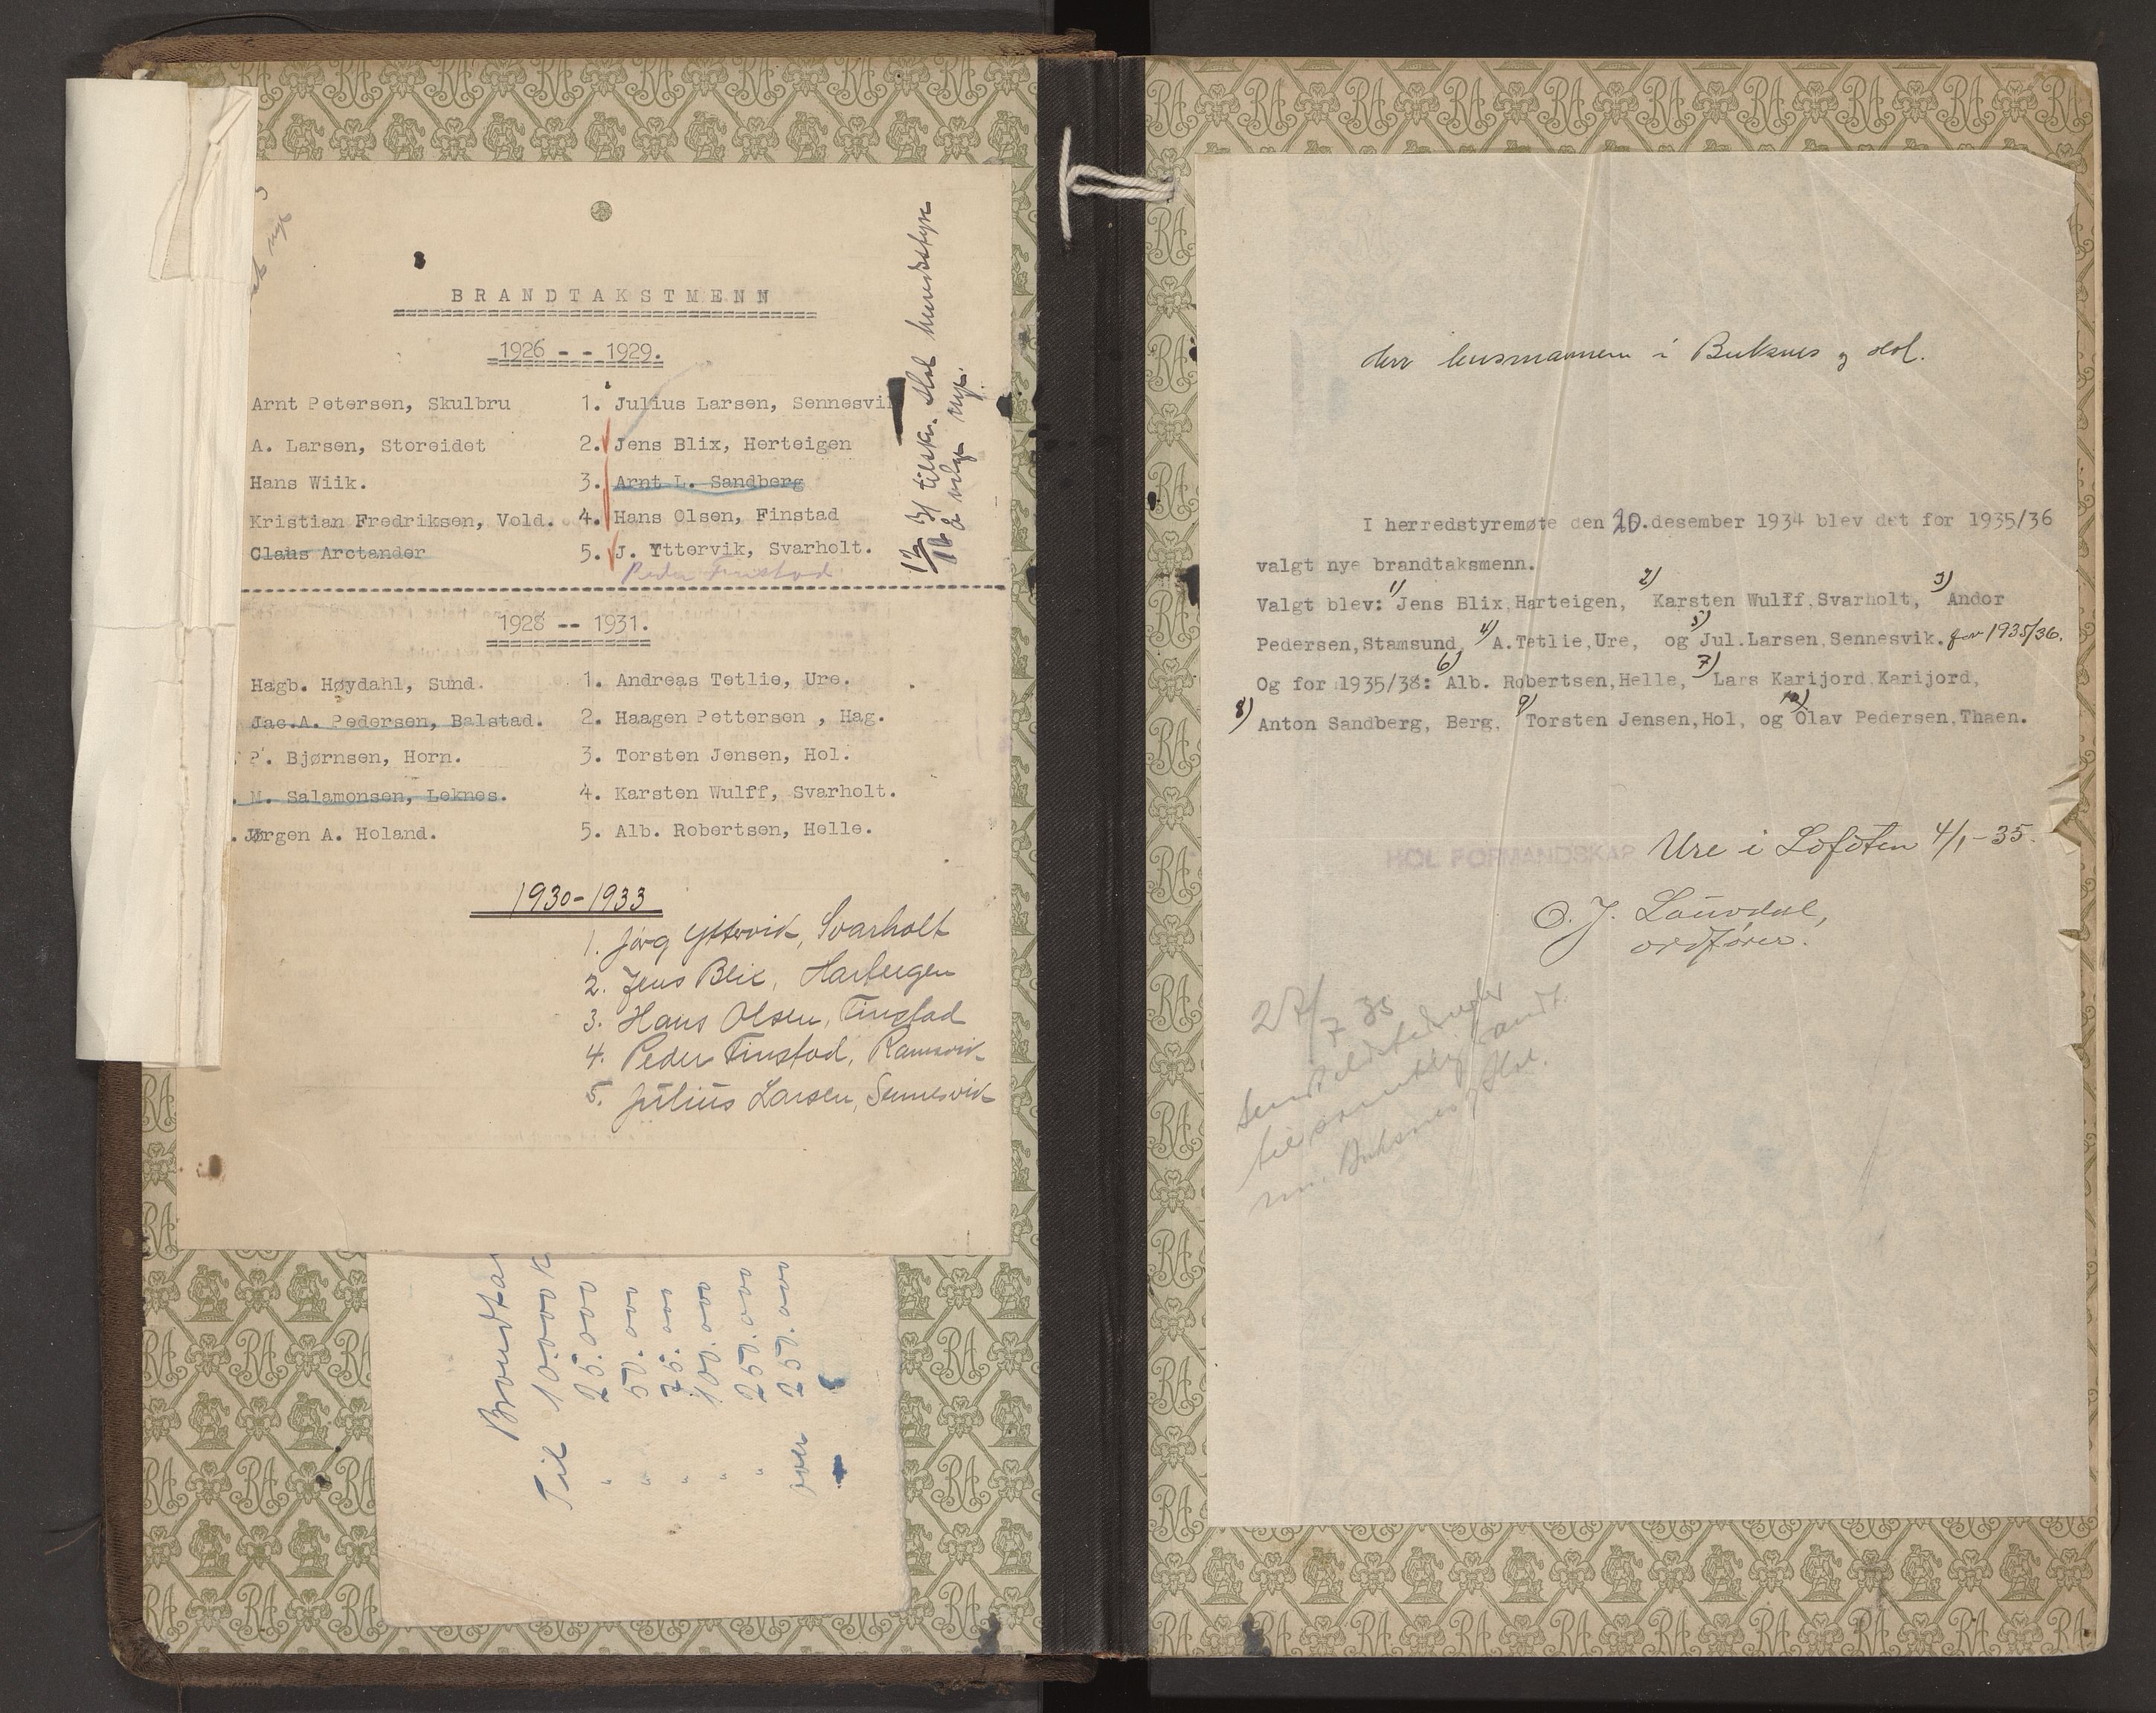 BRANDTAKSTMENN
1926 - - 1929.
Arnt Petersen, Skulbru
A. Larsen, Storeidet
Hans Wiik.
Kristian Fredriksen, Vold.
Claus Arctander
1. Julius Larsen, Sennesvik
2. Jens Blix, Herteigen
3. Arnt L. Sandberg
4. Hans Olsen, Finstad
5. J. Yttervik, Svarholt.
Peder Finstad
12/16 31 tilskr. Hol herredstyre
å velge nye.
1928 -- 1931.
Hagb. Høydahl, Sund.
Jac.A. Pedersen, Balstad.
P. Bjørnsen, Horn.
M. Salamonsen, Leknes.
Jørgen A. Holand.
1. Andreas Tetlie, Ure.
2. Haagen Pettersen , Hag.
3. Torsten Jensen, Hol.
4. Karsten Wulff, Svarholt.
5. Alb. Robertsen, Helle.
1930-1933
1. Jørg Yttervik, Svarholt
2. Jens Blix, Harteigen
3. Hans Olsen, Finstad
4. Peder Finstad, Ramsvik
5. Julius Larsen, Sennesvik
Brandta
Til 10.000 k
" 25.000
" 50.000
" 75.000
" 100.000
" 250.000
over 250.000
Herr lensmannen i Buksnes og Hol.
I herredstyremøte den 20.desember 1934 blev det for 1935/36
valgt nye brandtaksmenn.
Valgt blev: 1) Jens Blix,Harteigen, 2) Karsten Wulff,Svarholt, 3) Andor
Pedersen,Stamsund, 4) A.Tetlie,Ure, og 5) Jul.Larsen,Sennesvik. for 1935/36.
Og for 1935/38: 6) Alb. Robertsen,Helle, 7) Lars Karijord,Karijord,
8) Anton Sandberg, Berg, 9) Torsten Jensen,Hol, og 10) Olav Pedersen,Thaen.
HOL FORMANDSKAP Ure i Lofoten 4/1-35.
O. J. Lauvdal,
ordfører.
27/7 35
til samtlige
m. Buksnes og Hol.